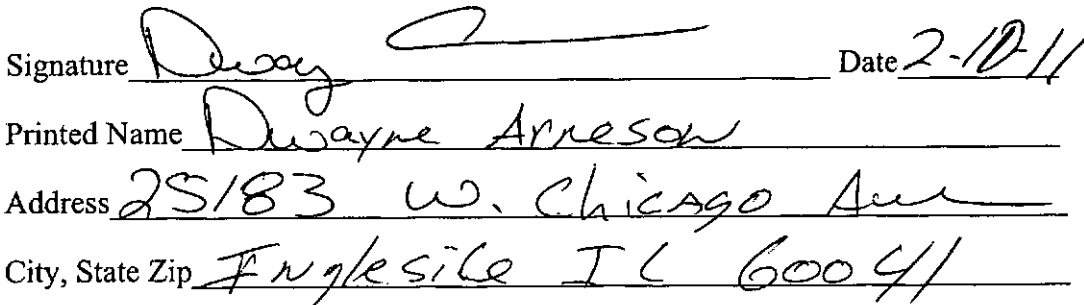 Signature Dway Date 2-10-11
Printed Name Dwayne Arneson
Address 25183 W. Chicago Ave
City, State Zip Ingleside IL 60041